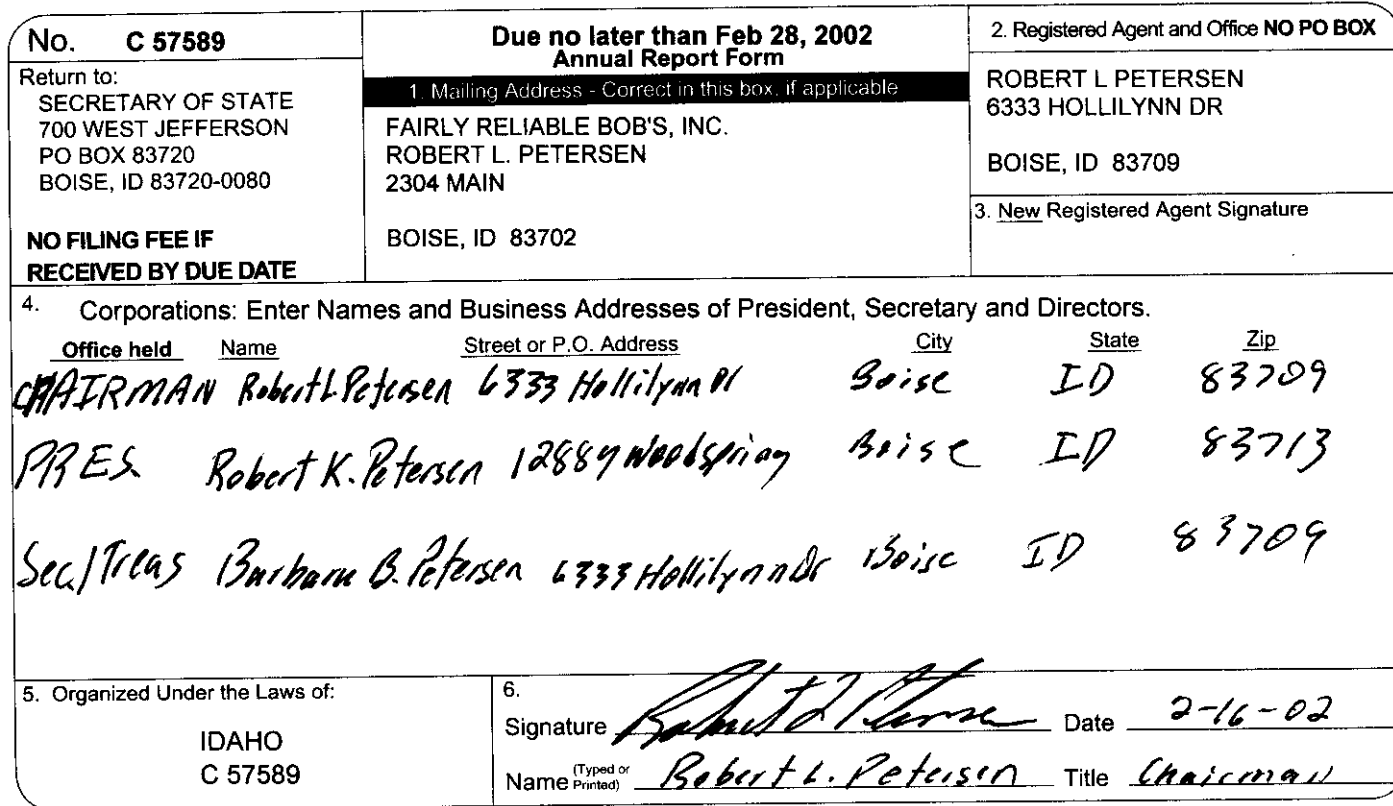 No. C 57589
Return to:
SECRETARY OF STATE
700 WEST JEFFERSON
PO BOX 83720
BOISE, ID 83720-0080
NO FILING FEE IF
RECEIVED BY DUE DATE
Due no later than Feb 28, 2002
Annual Report Form
1. Mailing Address - Correct in this box, if applicable
FAIRLY RELIABLE BOB'S, INC.
ROBERT L. PETERSEN
2304 MAIN
BOISE, ID 83702
2. Registered Agent and Office NO PO BOX
ROBERT L PETERSEN
6333 HOLLILYNN DR
BOISE, ID 83709
3. New Registered Agent Signature
4. Corporations: Enter Names and Business Addresses of President, Secretary and Directors.
Office held Name Street or P.O. Address City State Zip
CHAIRMAN Robert L. Petersen 6333 Hollilynn Dr Boise ID 83709
PRES. Robert K. Petersen 12889 Woodspring Boise ID 83713
Sec/Treas Barbara B. Petersen 6333 Hollilynn Dr Boise ID 83709
5. Organized Under the Laws of:
IDAHO
C 57589
6.
Signature Robert L Petersen Date 2-16-02
Name (Typed or Printed) Robert L. Petersen Title Chairman